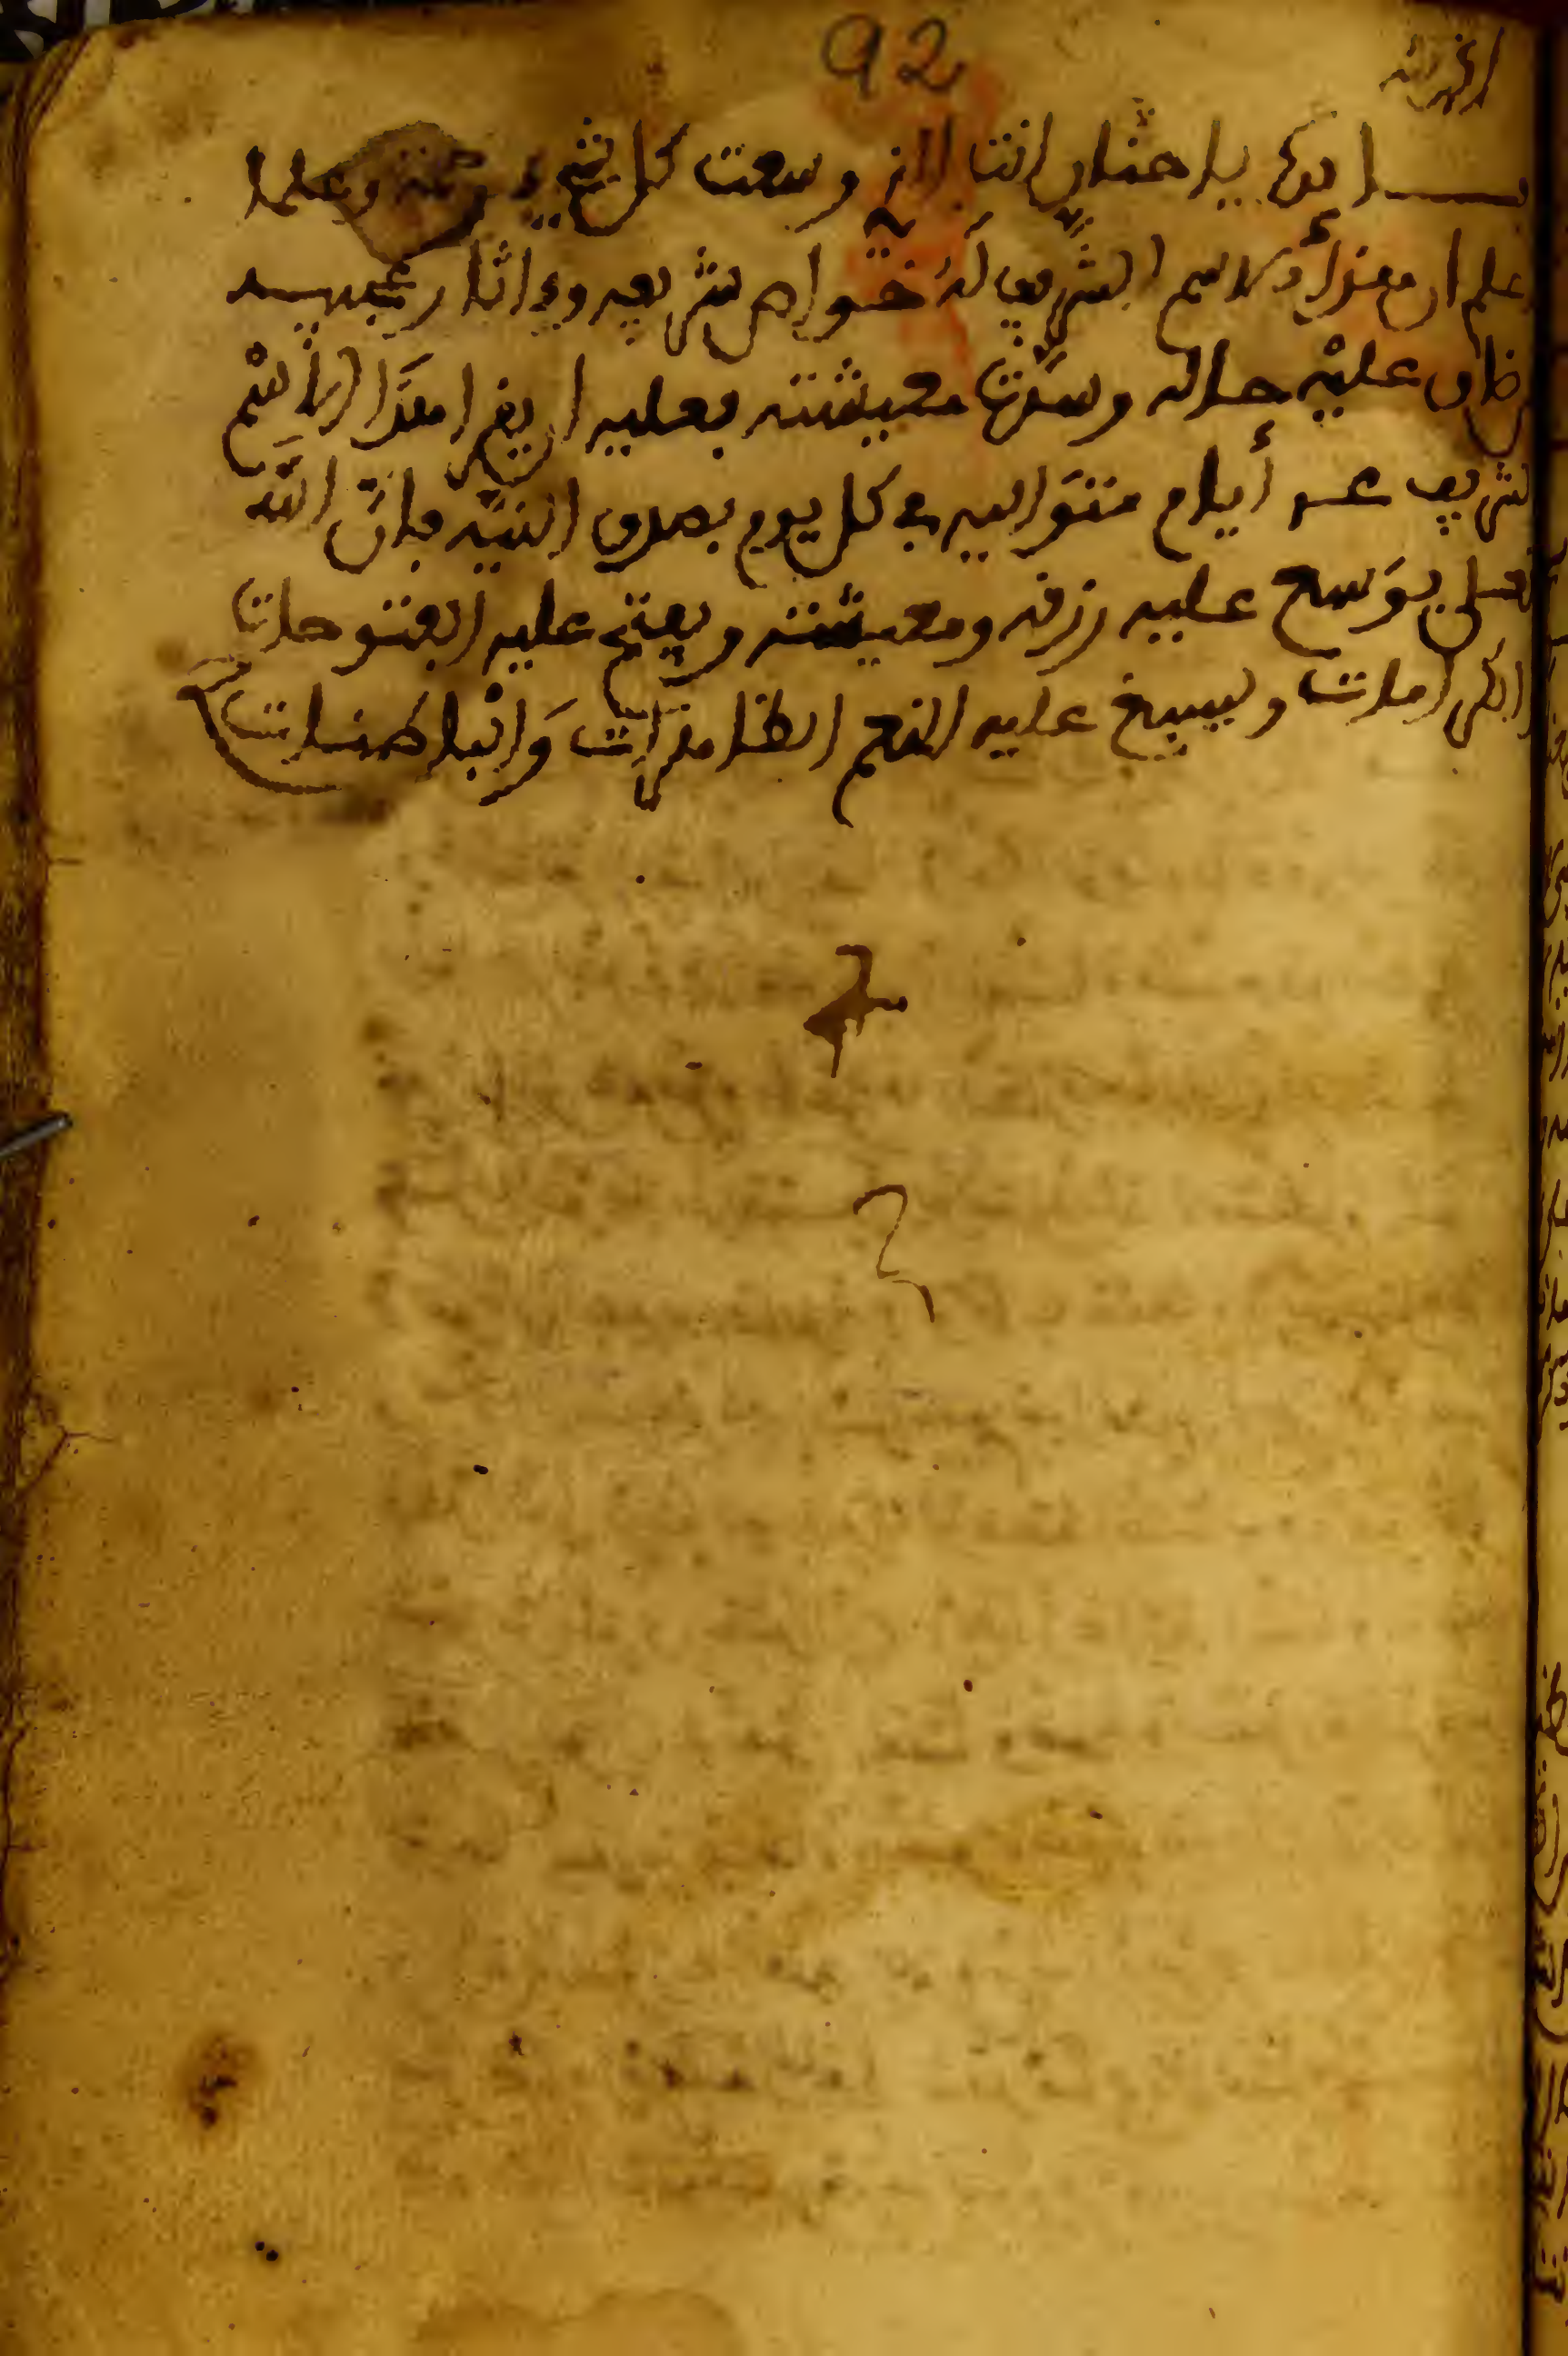 92
يا حنان انت الذ وسعت كل شيء رحمة وعلما
علم ان هذا الاسم الشريف له خواص شريفه وءاثار عجيبه
ضاق عليه حاله وسدت معيشته فعليه ان يقرا هذا الاسم
لشريف عشر أيام متواليه في كل يوم بصدق النيه فان الله
تعلى يوسع عليه رزقه ومعيشته ويفتح عليه الفتوحات
والكرامات ويسبغ عليه النعم الظاهرات والباطنات